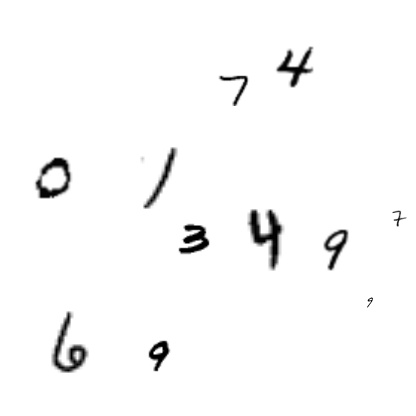 7 4
0 1
3 4 9 7
9
6 9